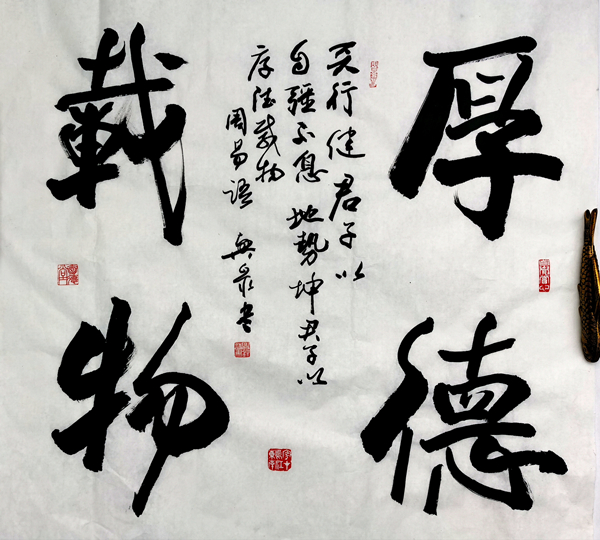 厚德
载物
天行健君子以
自强不息地势坤君子以
厚德载物
周易语 兴泉书